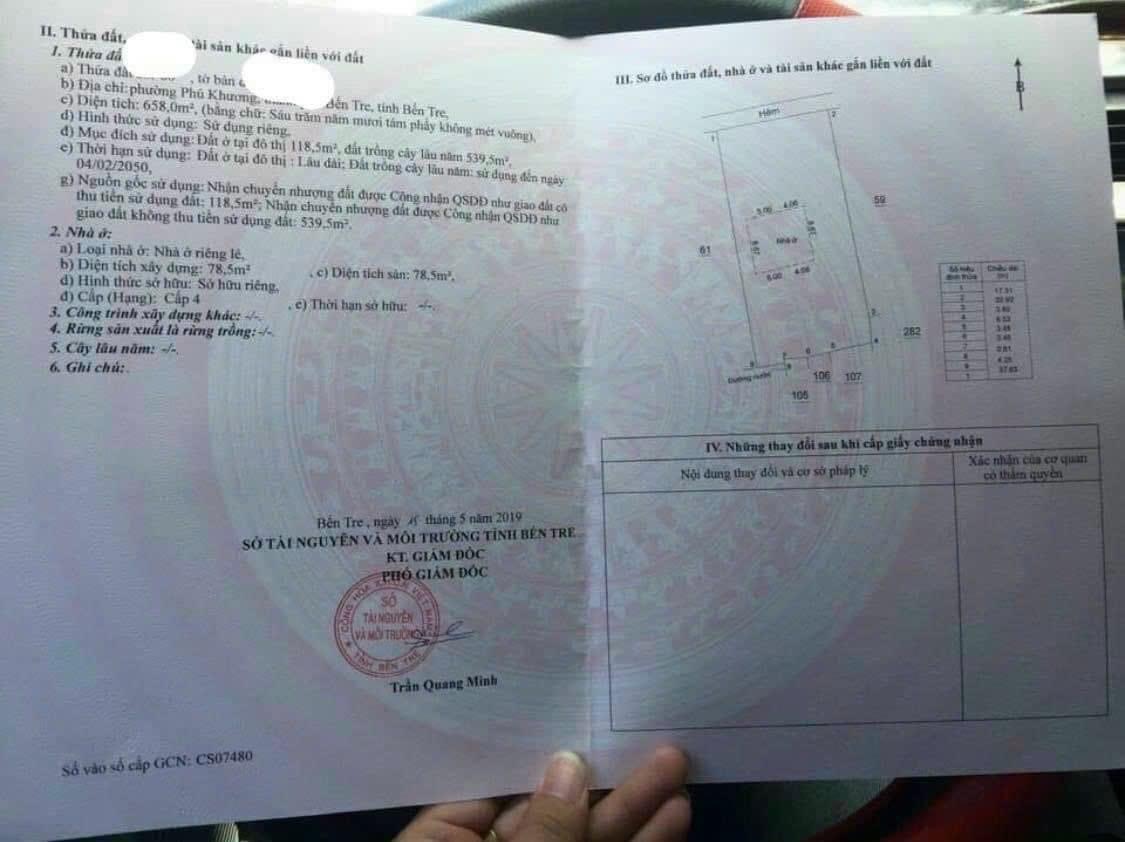 II. Thửa đất, tài sản khác gắn liền với đất
1. Thửa đấ
a) Thửa đấ , tờ bản
b) Địa chỉ: phường Phú Khương, Bến Tre, tỉnh Bến Tre,
c) Diện tích: 658,0m², (bằng chữ: Sáu trăm năm mươi tám phẩy không mét vuông),
d) Hình thức sử dụng: Sử dụng riêng,
đ) Mục đích sử dụng: Đất ở tại đô thị 118,5m², đất trồng cây lâu năm 539,5m²,
e) Thời hạn sử dụng: Đất ở tại đô thị : Lâu dài; Đất trồng cây lâu năm: sử dụng đến ngày
04/02/2050,
g) Nguồn gốc sử dụng: Nhận chuyển nhượng đất được Công nhận QSDĐ như giao đất có
thu tiền sử dụng đất: 118,5m²; Nhận chuyển nhượng đất được Công nhận QSDĐ như
giao đất không thu tiền sử dụng đất: 539,5m².
2. Nhà ở:
a) Loại nhà ở: Nhà ở riêng lẻ,
b) Diện tích xây dựng: 78,5m² , c) Diện tích sàn: 78,5m²,
d) Hình thức sở hữu: Sở hữu riêng,
đ) Cấp (Hạng): Cấp 4 , e) Thời hạn sở hữu: -/-.
3. Công trình xây dựng khác: -/-.
4. Rừng sản xuất là rừng trồng: -/-.
5. Cây lâu năm: -/-.
6. Ghi chú: .
Bến Tre , ngày 15 tháng 5 năm 2019
SỞ TÀI NGUYÊN VÀ MÔI TRƯỜNG TỈNH BẾN TRE
KT. GIÁM ĐỐC
PHÓ GIÁM ĐỐC
CỘNG HÒA X.H.C.N VIỆT NAM
SỞ
TÀI NGUYÊN
VÀ MÔI TRƯỜNG
TỈNH BẾN TRE
Trần Quang Minh
Số vào sổ cấp GCN: CS07480
III. Sơ đồ thửa đất, nhà ở và tài sản khác gắn liền với đất
B
Hẻm
1
2
59
5.00 4.06
Nhà ở
61
5.00 4.06
3
282
4
5
6
7
8
9
Đường nước
106
107
105
Số hiệu đỉnh thửa
Chiều dài (m)
1
2
3
4
5
6
7
8
9
1
17.51
IV. Những thay đổi sau khi cấp giấy chứng nhận
Nội dung thay đổi và cơ sở pháp lý
Xác nhận của cơ quan
có thẩm quyền